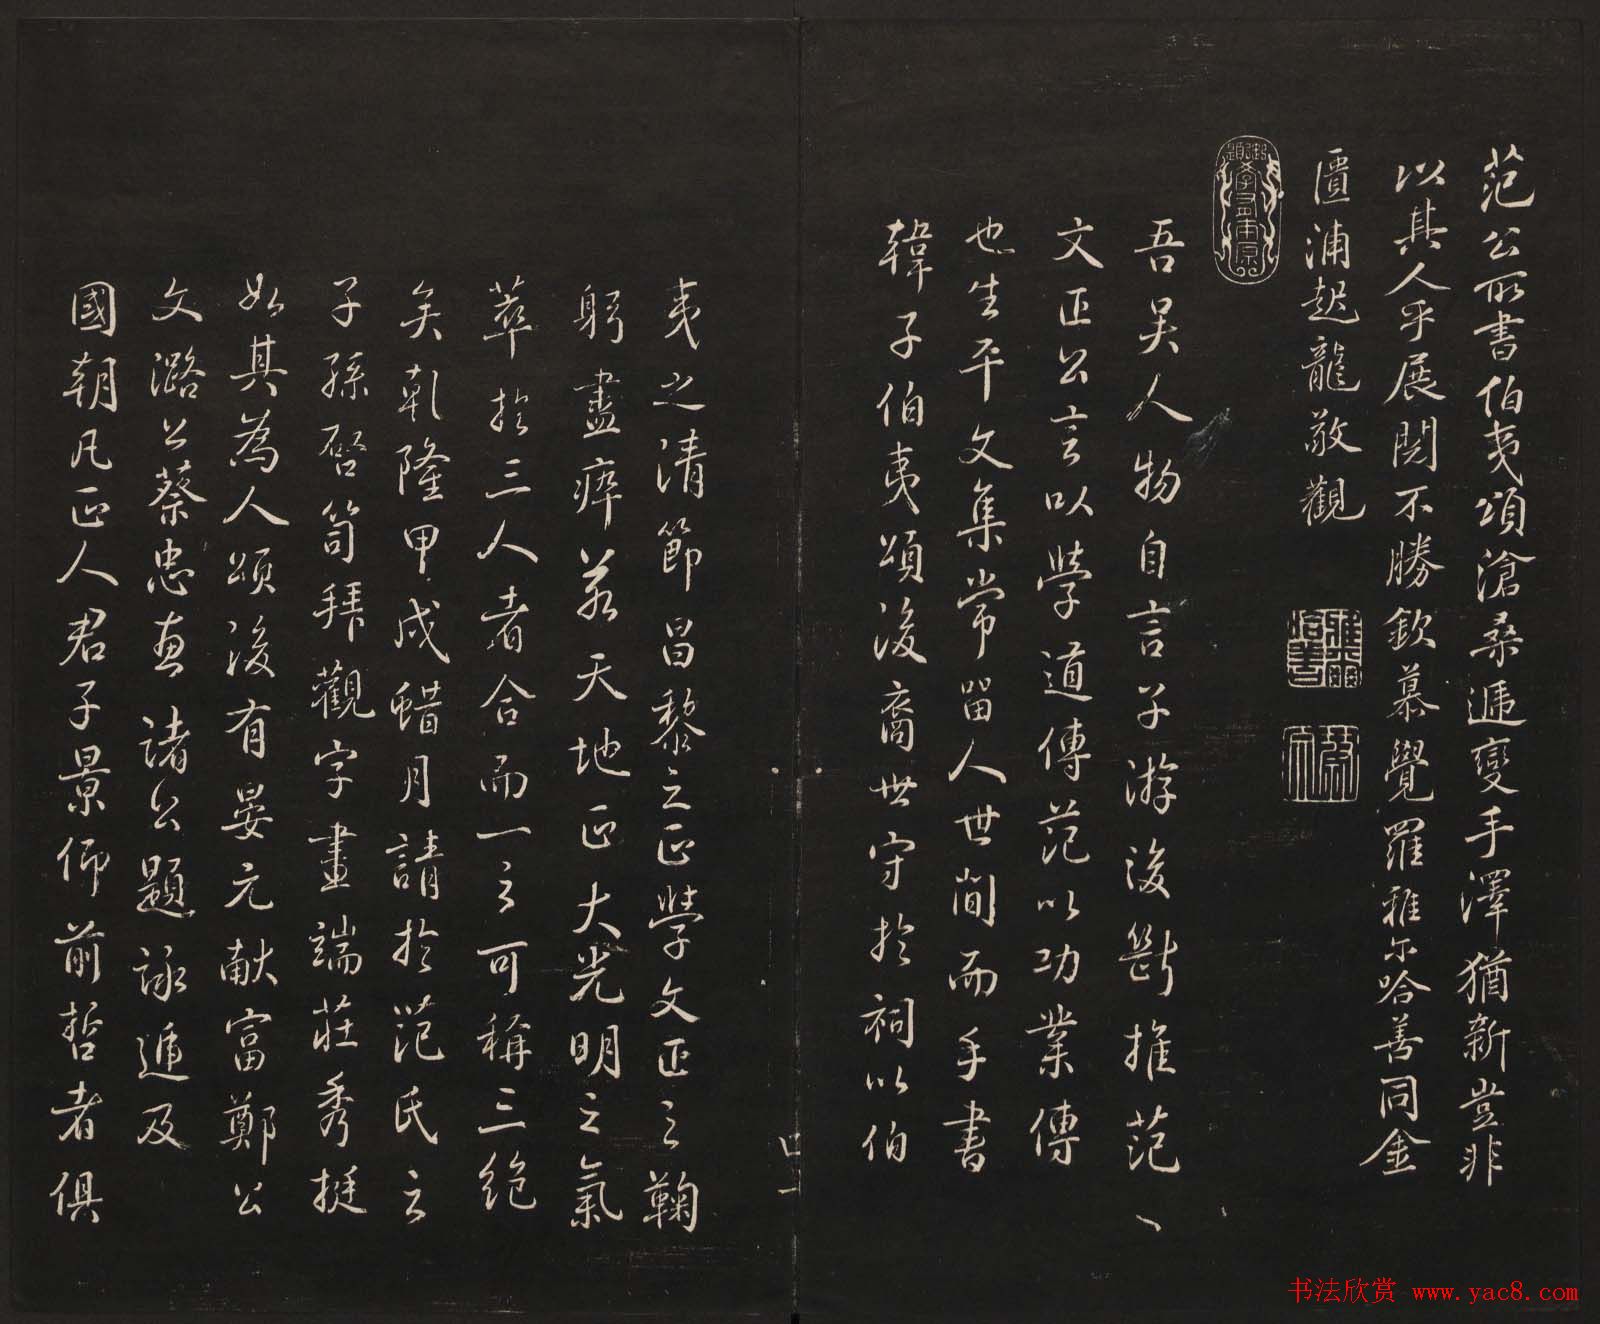 范公所書伯夷頌滄桑遞變手澤猶新豈非
以其人乎展閱不勝欽慕覺羅雅尔哈善同金
匱浦起龍敬觀
吾吴人物自言子游後斷推范
文正公言以學道傳范以功業傳
也生平文集常留人世間而手書
韓子伯夷頌後裔世守於祠以伯
夷之清節昌黎之正學文正之鞠
躬盡瘁若天地正大光明之氣
萃於三人者合而一之可稱三絶
矣乹隆甲戌蜡月請於范氏之
子孫啓笥拜觀字畫端莊秀挺
如其為人頌後有晏元献富鄭公
文潞公蔡忠惠諸公題詠遞及
國朝凡正人君子景仰前哲者俱
书法欣赏 www.yac8.com